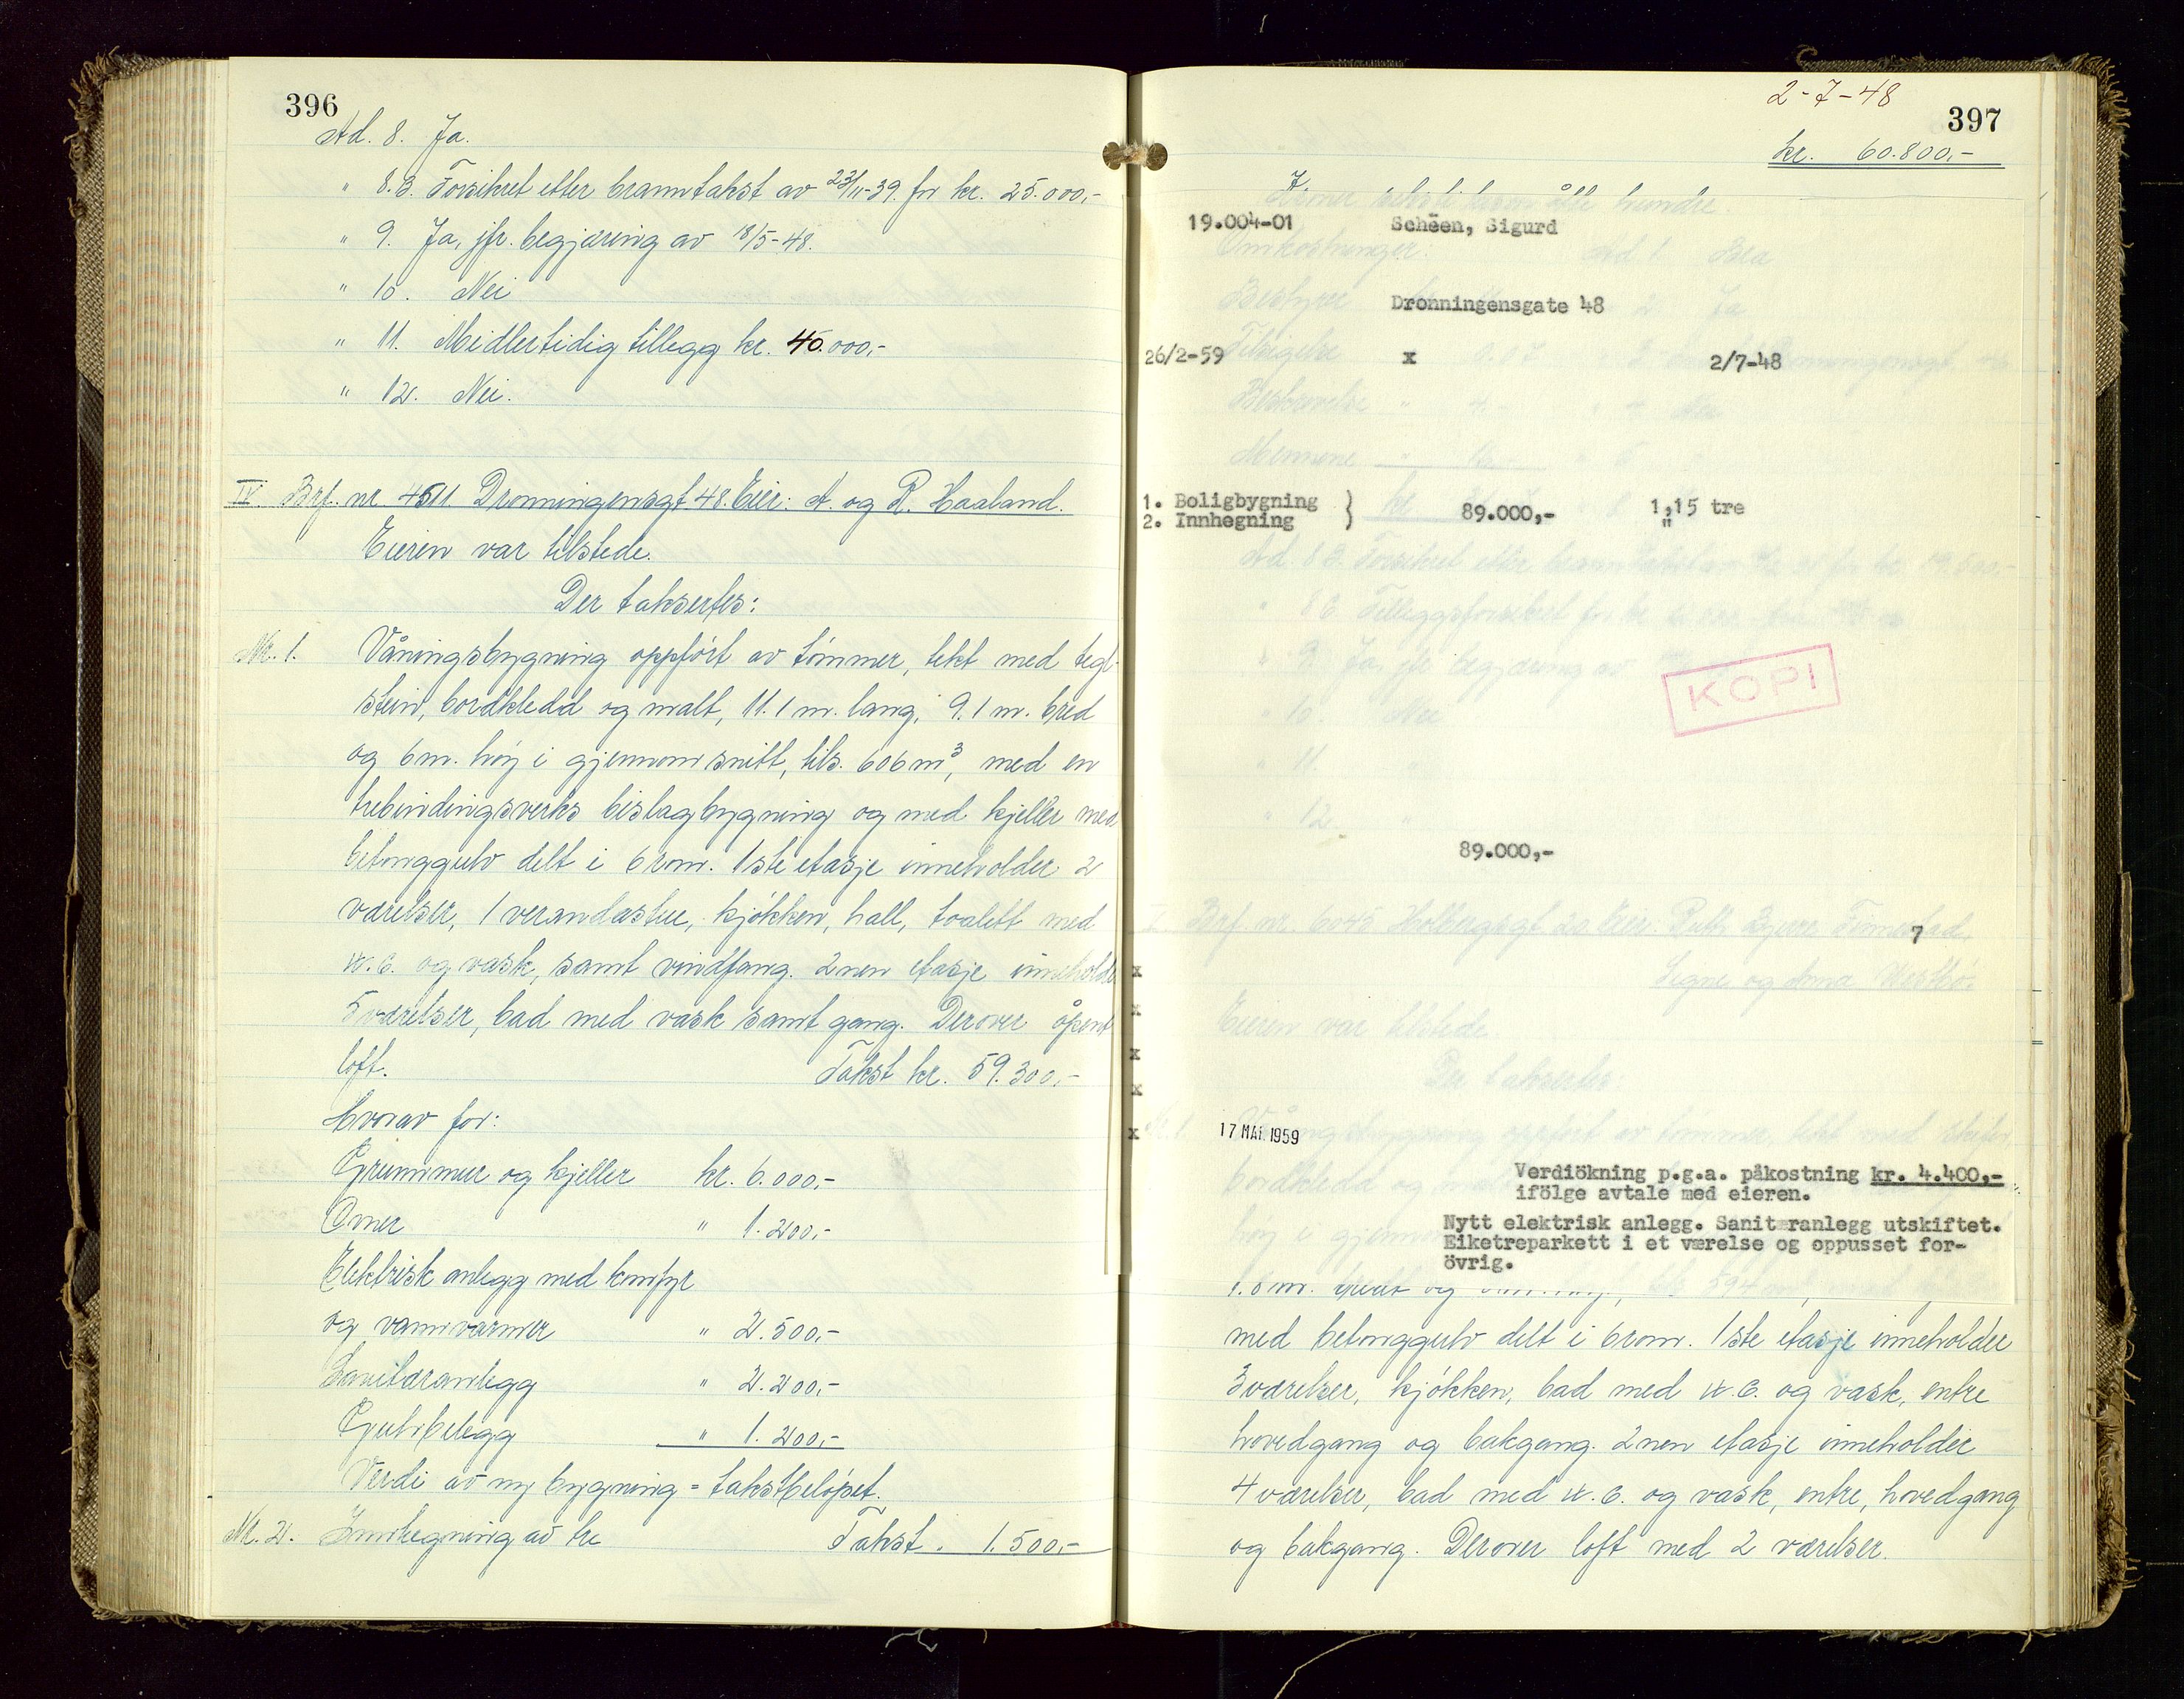 396
Ad. 8. Ja.
" 8.B. Forsikret etter branntakst av 23/11-39. for kr. 25.000,-
" 9. Ja, jfr. begjæring av 18/5-48.
" 10. Nei
" 11. Midlertidig tillegg kr. 40.000,-
" 12. Nei.
IV. Brf. nr. 4511 Dronningensgt 48. Eier: A. og R. Haaland.
Eieren var tilstede.
Der taksertes:
Nr. 1. Våningsbygning oppført av tømmer, tekt med tegl-
stein, bordkledd og malt, 11.1 m. lang, 9.1 m. bred
og 6 m. høy i gjennomsnitt, tils. 606 m³, med en
trebindingsverks bislagbygning og med kjeller med
betonggulv delt i 6 rom. 1ste etasje inneholder 2
værelser, 1 verandastue, kjøkken, hall, toalett med
w.c. og vask, samt vindfang. 2nen etasje inneholder
5 værelser, bad med vask samt gang. Derover åpent
loft. Takst kr. 59.300,-
Hvorav for:
Grunnmur og kjeller kr. 6.000,-
Ovner " 1.200,-
Elektrisk anlegg med komfyr
og vannvarmer " 2.500,-
Sanitæranlegg " 2.200,-
Gulvbelegg " 1.200,-
Verdi av ny bygning = takstbeløpet.
Nr. 2. Innhegning av tre Takst . 1.500,-
2-7-48
397
kr. 60.800,-
19.004-01 Schëen, Sigurd
Dronningensgate 48
26/2-59 x 2/7-48
1. Boligbygning
2. Innhegning } 89.000,- 1,15 tre
"
KOPI
89.000,-
7
x
x
x
x
x
17 MAI 1959
Verdiökning p.g.a. påkostning kr. 4.400,-
ifölge avtale med eieren.
Nytt elektrisk anlegg. Sanitæranlegg utskiftet.
Eiketreparkett i et værelse og oppusset for-
övrig.
med betonggulv delt i 6 rom. 1ste etasje inneholder
3 værelser, kjøkken, bad med w.c. og vask, entre
hovedgang og bakgang. 2nen etasje inneholder
4 værelser, bad med w.c. og vask, entre, hovedgang
og bakgang. Derover loft med 2 værelser.